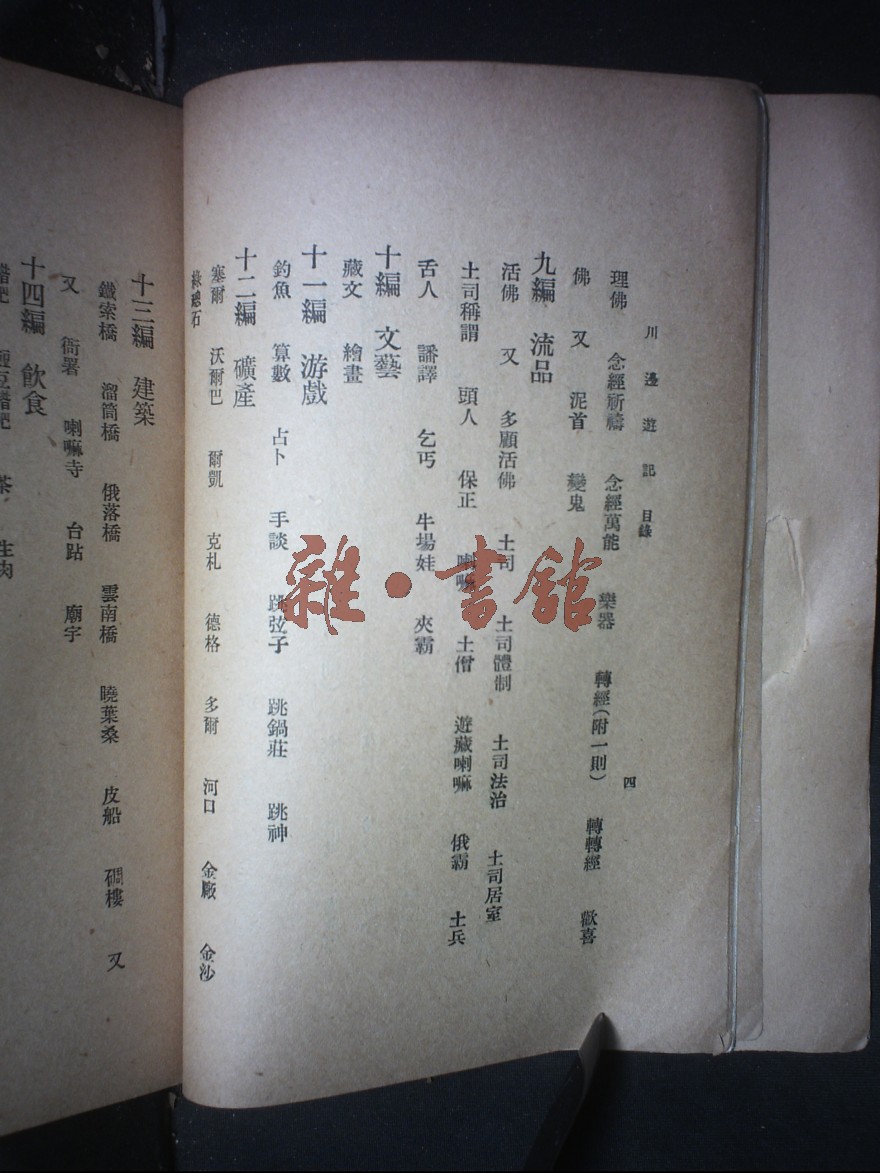 川邊遊記 目錄 四
理佛 念經祈禱 念經萬能 樂器 轉經(附一則) 轉轉經 歡喜
佛 又 泥首 變鬼
九編 流品
活佛 又 多顧活佛 土司 土司體制 土司法治 土司居室
土司稱謂 頭人 保正 喇嘛 土僧 遊藏喇嘛 俄霸 土兵
舌人 譒譯 乞丐 牛場娃 夾霸
十編 文藝
藏文 繪畫
十一編 游戲
釣魚 算數 占卜 手談 跳弦子 跳鍋莊 跳神
十二編 礦產
塞爾 沃爾巴 爾凱 克札 德格 多爾 河口 金廠 金沙
綠總石
十三編 建築
鐵索橋 溜筒橋 俄落橋 雲南橋 曉葉桑 皮船 碉樓 又
又 衙署 喇嘛寺 台跕 廟宇
十四編 飲食
茶 生肉
雜·書館